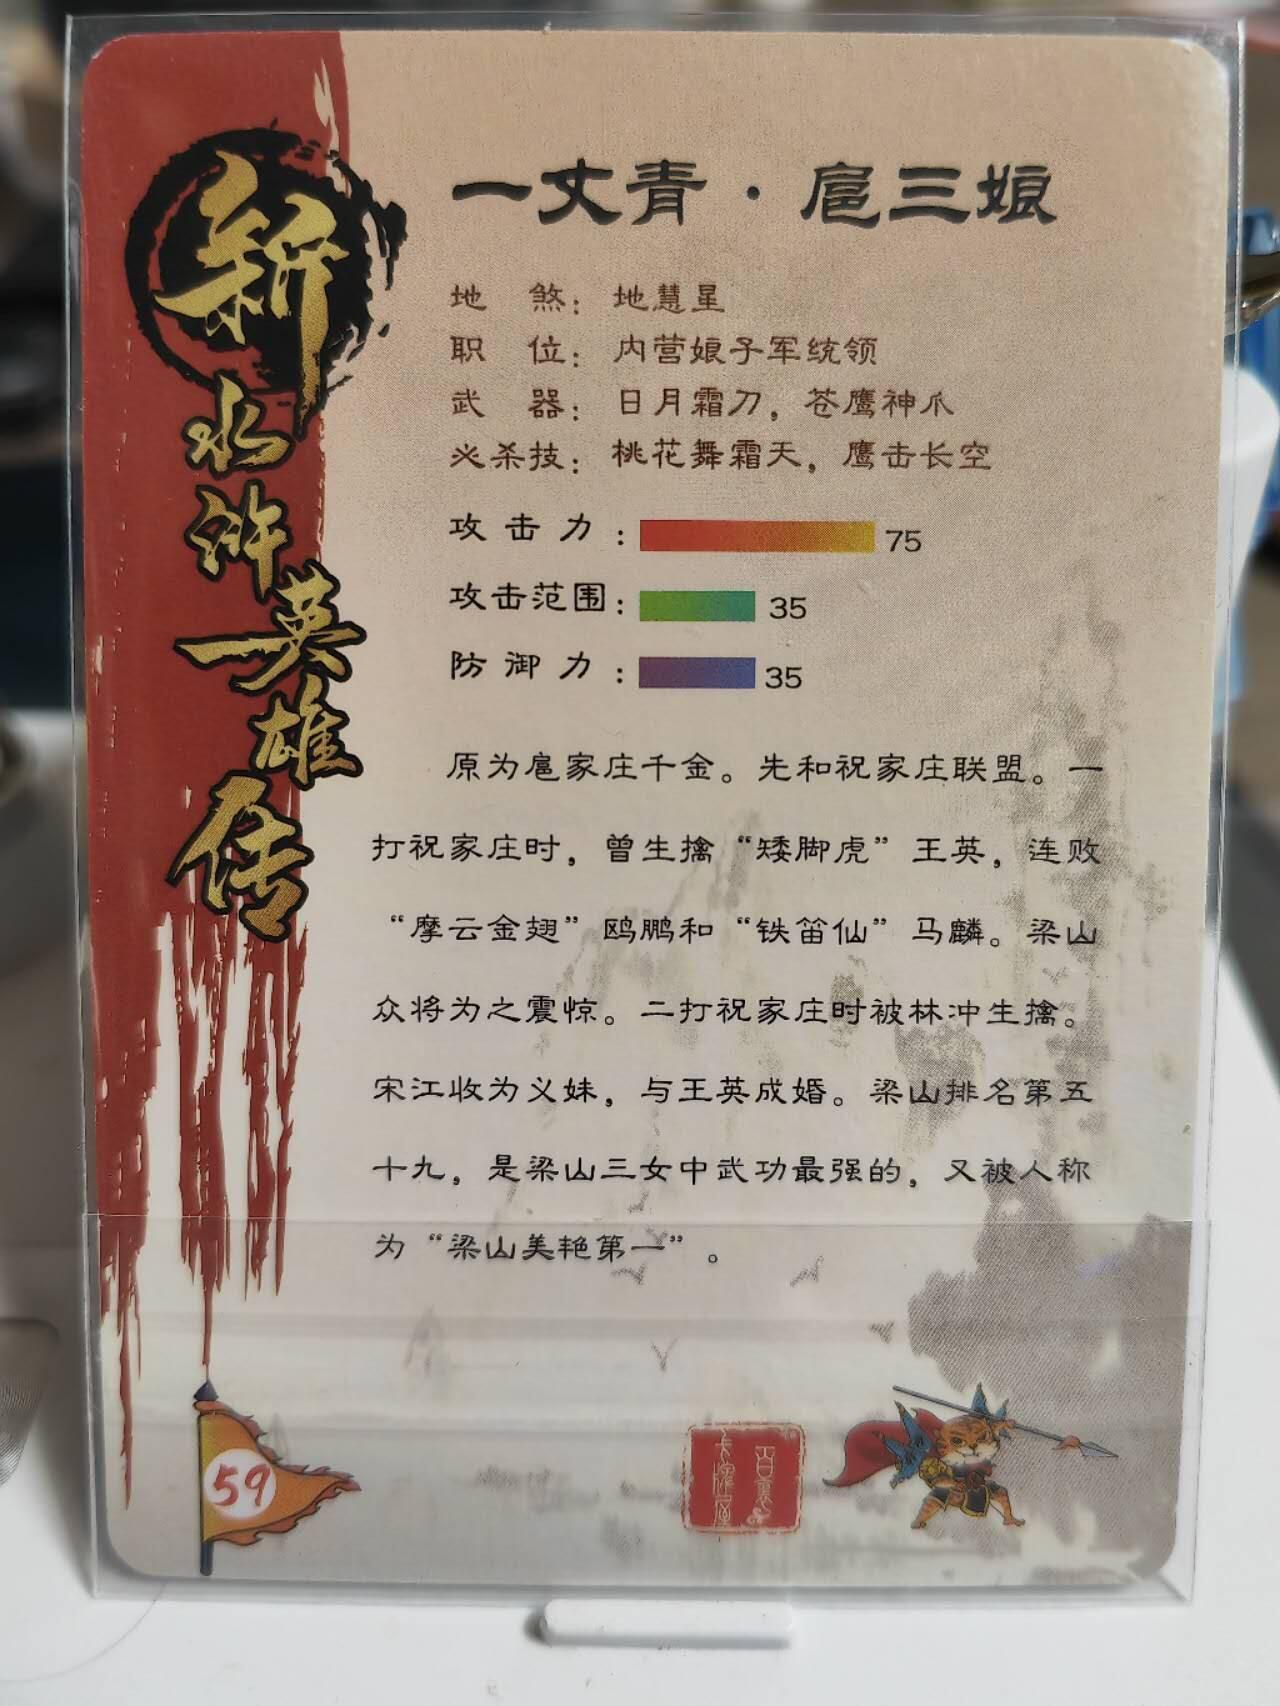 新
水
浒
英
雄
传
一丈青·扈三娘
地 煞：地慧星
职 位：内营娘子军统领
武 器：日月霜刀，苍鹰神爪
必杀技：桃花舞霜天，鹰击长空
攻击力：75
攻击范围：35
防御力：35
原为扈家庄千金。先和祝家庄联盟。一
打祝家庄时，曾生擒“矮脚虎”王英，连败
“摩云金翅”鸥鹏和“铁笛仙”马麟。梁山
众将为之震惊。二打祝家庄时被林冲生擒。
宋江收为义妹，与王英成婚。梁山排名第五
十九，是梁山三女中武功最强的，又被人称
为“梁山美艳第一”。
59